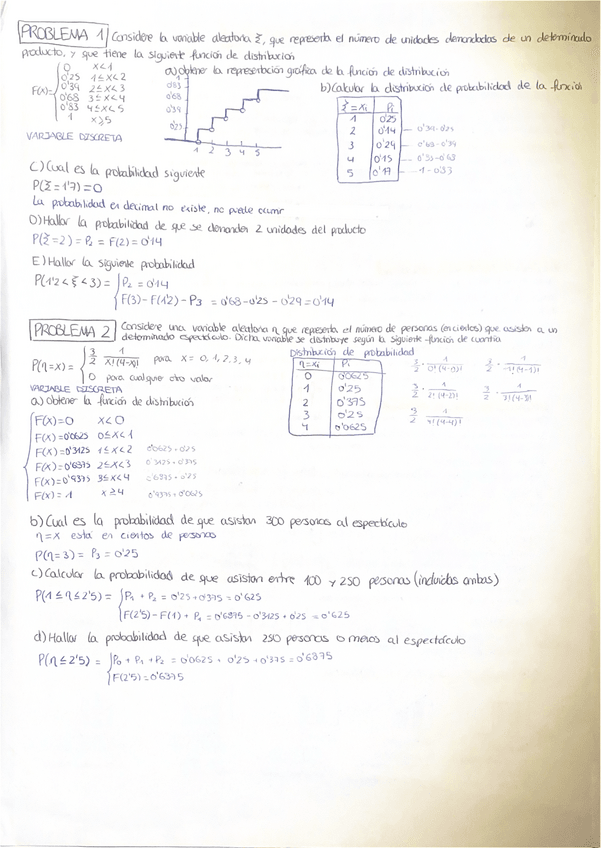 PROBLEMA 1 Considere la variable aleatoria ξ, que representa el número de unidades demandadas de un determinado
producto, y que tiene la siguiente función de distribución
F(x)= { 0 x<1
0'25 1≤x<2
0'39 2≤x<3
0'68 3≤x<4
0'83 4≤x<5
1 x≥5
VARIABLE DISCRETA
a) obtener la representación gráfica de la función de distribución
1
0'83
0'68
0'39
0'25
1 2 3 4 5
b) Calcular la distribución de probabilidad de la función
ξ=xi Pi
1 0'25
2 0'14 — 0'39-0'25
3 0'29 — 0'68-0'39
4 0'15 — 0'83-0'68
5 0'17 — 1-0'83
C) Cual es la probabilidad siguiente
P(ξ=1'7)=0
La probabilidad en decimal no existe, no puede ocurrir
D) Hallar la probabilidad de que se demanden 2 unidades del producto
P(ξ=2) = P₂ = F(2) = 0'14
E) Hallar la siguiente probabilidad
P(1'2<ξ<3) = { P₂ = 0'14
F(3)-F(1'2)-P₃ = 0'68-0'25-0'29=0'14
PROBLEMA 2 Considere una variable aleatoria η que representa el número de personas (en cientos) que asisten a un
determinado espectáculo. Dicha variable se distribuye según la siguiente función de cuantía
P(η=x) = { 3/2 1/x!(4-x)! para x = 0, 1, 2, 3, 4
0 para cualquier otro valor
VARIABLE DISCRETA
Distribución de probabilidad
η=xi Pi
0 0'0625
1 0'25
2 0'375
3 0'25
4 0'0625
3/2 · 1/0!(4-0)! 3/2 · 1/1!(4-1)!
3/2 · 1/2!(4-2)! 3/2 · 1/3!(4-3)!
3/2 1/4!(4-4)!
a) obtener la función de distribución
F(x)=0 x<0
F(x)=0'0625 0≤x<1
F(x)=0'3125 1≤x<2 0'0625+0'25
F(x)=0'6875 2≤x<3 0'3125+0'375
F(x)=0'9375 3≤x<4 0'6875+0'25
F(x)=1 x≥4 0'9375+0'0625
b) Cual es la probabilidad de que asistan 300 personas al espectáculo
η=x está en cientos de personas
P(η=3) = P₃ = 0'25
c) Calcular la probabilidad de que asistan entre 100 y 250 personas (incluidas ambas)
P(1≤η≤2'5) = { P₁ + P₂ = 0'25+0'375=0'625
F(2'5)-F(1)+P₁ = 0'6875-0'3125+0'25 = 0'625
d) Hallar la probabilidad de que asistan 250 personas o menos al espectáculo
P(η≤2'5) = { P₀+P₁+P₂ = 0'0625+0'25+0'375=0'6875
F(2'5)=0'6875